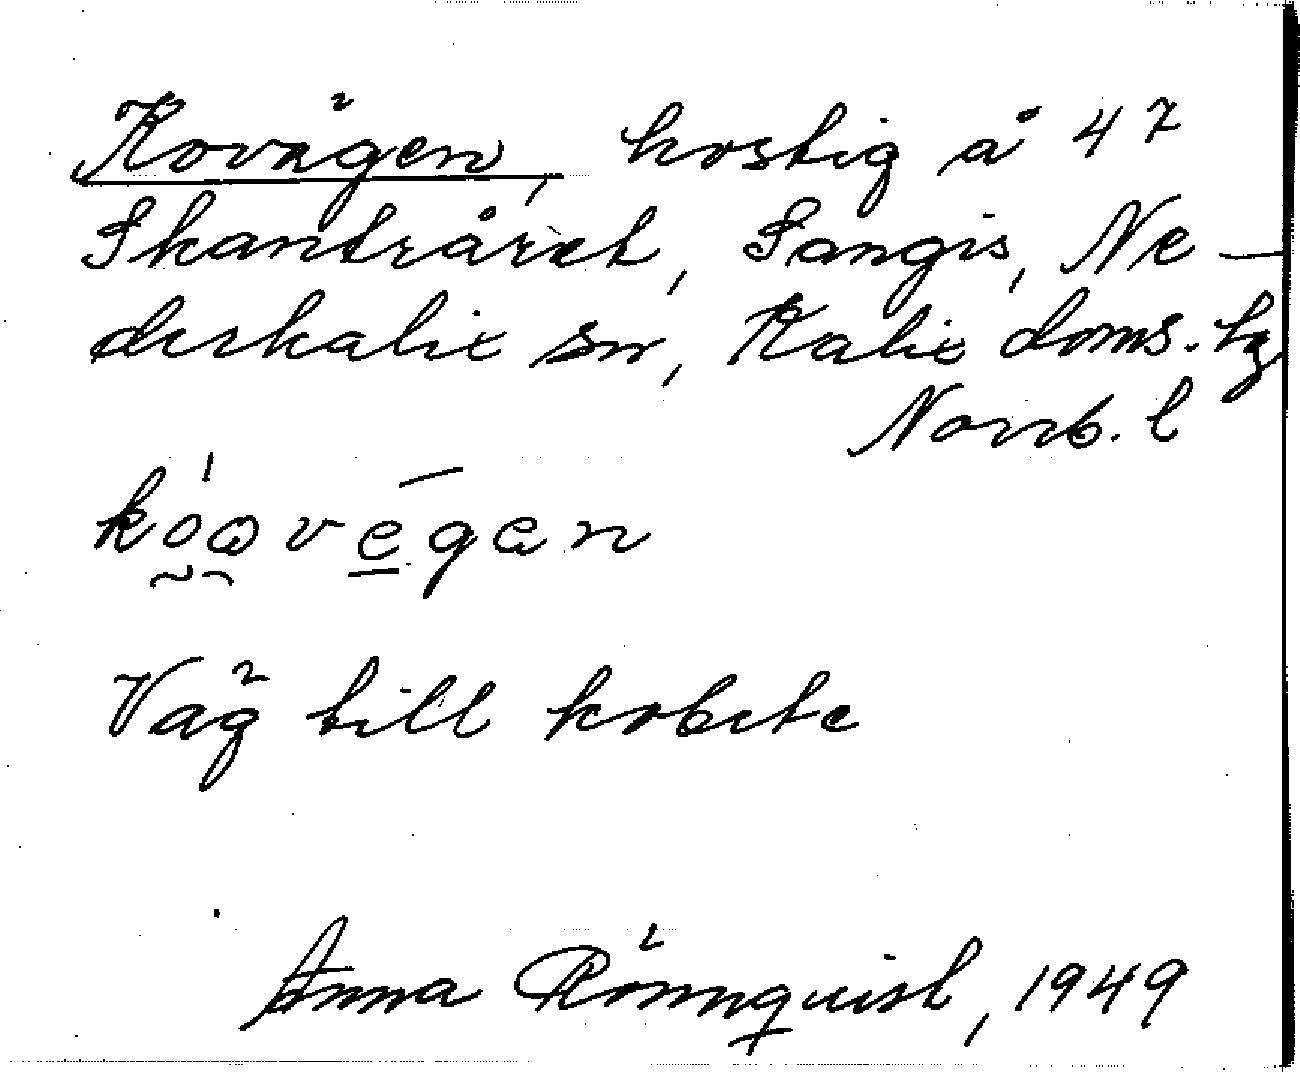 Kovägen, kostig å 47
Skanträret, Sangis, Ne-
derkalix sn, Kalix doms. hg
Norrb. l
kóωvēgen
Väg till kobete
Anna Rönnquist, 1949